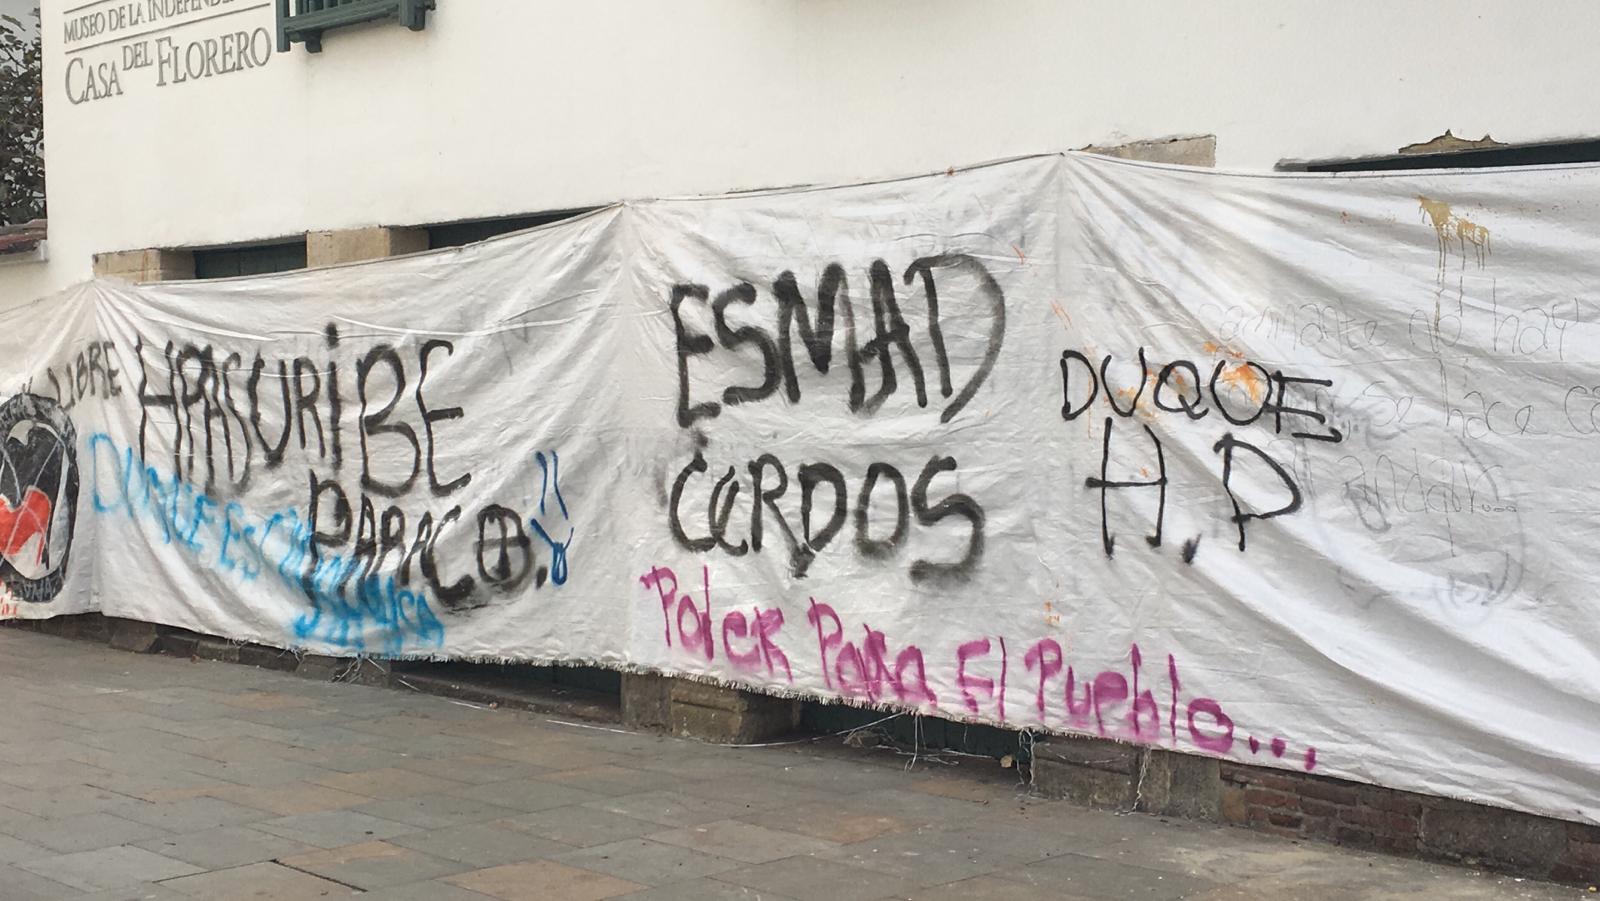 MUSEO DE LA INDEPENDE
CASA DEL FLORERO
LIBRE
HPASURIBE
PARACO.
DUQUE ES
ESMAD
CERDOS
DUQUE
H.P
Poder Para El Pueblo...
caminante no hay
se hace ca